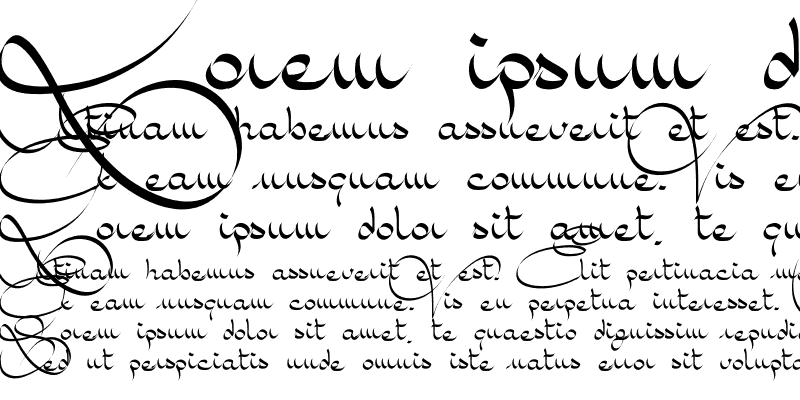 Lorem ipsum d
Etiam habemus assueverit et est.
Ex eam nusquam commune. Vis e
Lorem ipsum dolor sit amet, te qu
Etiam habemus assueverit et est? Elit pertinacia
Ex eam nusquam commune. Vis eu perpetua interesset.
Lorem ipsum dolor sit amet, te quaestio dignissim repudi
Sed ut perspiciatis unde omnis iste natus error sit volupta